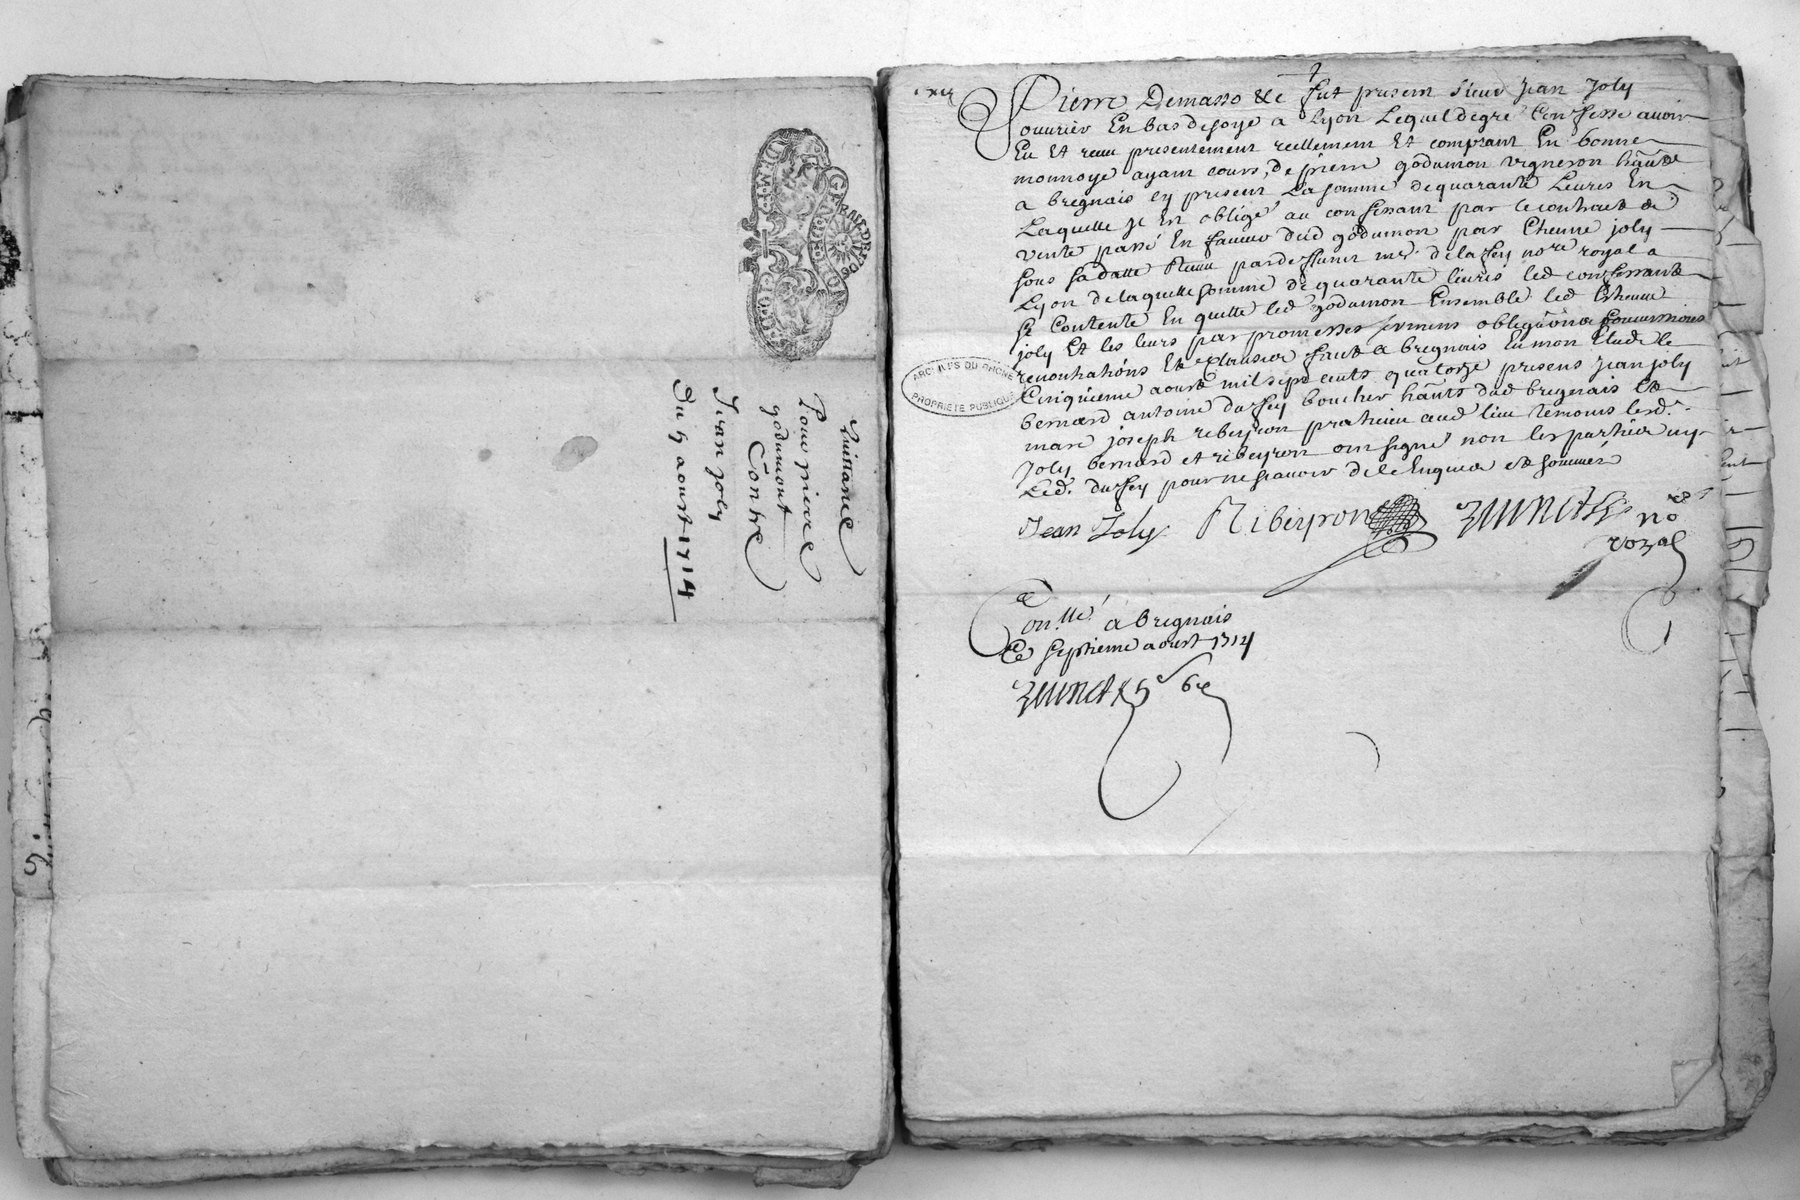 Quittance
Pour pierre
godumont
Contre
Jean joly
Du 5 aoust 1714
GNALITE DE LYON
Pierre Demasso &c fut present sieur Jean Joly
ouurier En bas de soye a Lyon Lequel de gré Confesse auoir
Eu Et receu presentement reellement Et comptant En bonne
monnoye ayant cours, de pierre godumon vigneron hãnt
a bregnais cy present La somme de quarante Liures En
Laquelle Il Est obligé au confessant par le contract de
vente passé En faueur dud godumon par Etienne joly
sous sa datte Receu par deffunct mr. de la ffey nore royal a
Lyon de laquelle somme de quarante liures led confessant
se Contente En quitte led godumon Ensemble led Etienne
joly Et les leurs par promesses sermens obligãons
renontiations Et clauses fait a bregnais En mon Etude le
Cinquieme aoust mil sept cents quatorze presens jean joly
bernard antoine du ffey boucher hãnts dud bregnais Et
marc joseph ribeyron praticien aud lieu temoins lesd.
Joly bernard et ribeyron ont signé non les parties ny
Led. du ffey pour ne scauoir de ce Enquis et sommés
Jean Joly Ribeyron
no
royal
ARCHIVES DU RHONE
PROPRIETE PUBLIQUE
Con.llé a bregnais
Ce septieme aoust 1714